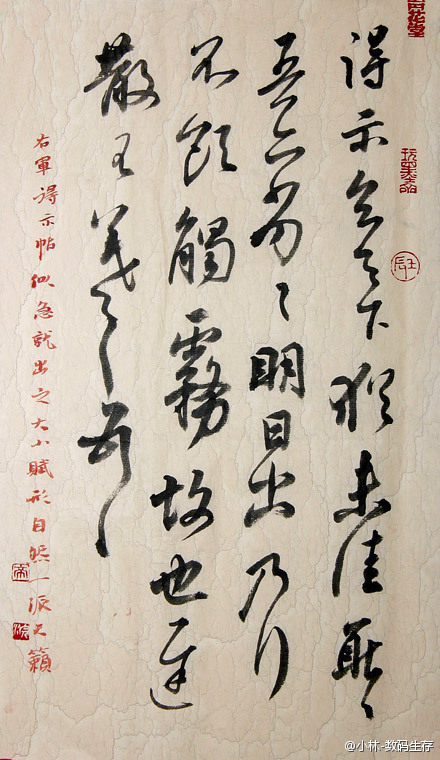 得示知足下猶未佳耿〻
吾亦劣〻明日出乃行
不欲觸霧故也遲
散王羲之頓首
右軍得示帖似急就出之大小賦形自然一派天籟
壬辰
@小林-数码生存